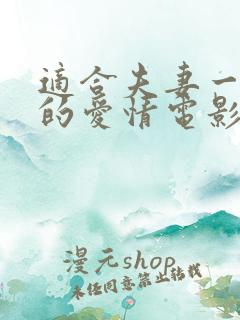 適合夫妻一
的愛情電影
漫元shop
未经同意禁止转载